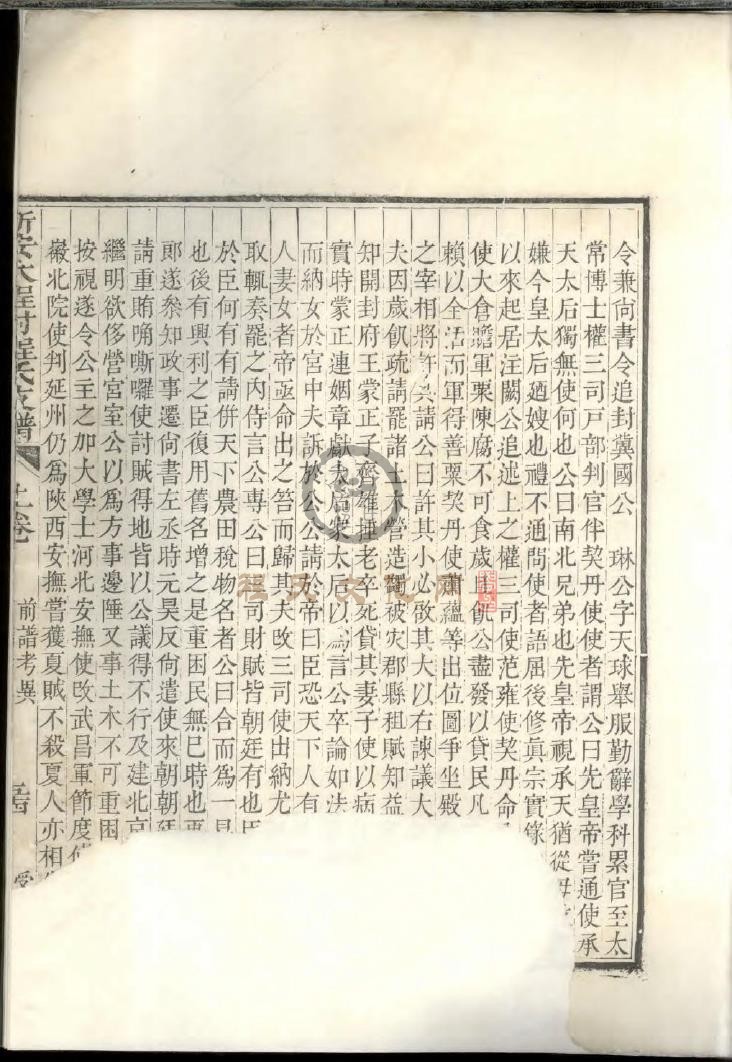 令兼尙書令追封冀國公　琳公字天球舉服勤辭學科累官至太
常博士權三司戸部判官伴契丹使使者謂公曰先皇帝嘗通使承
天太后獨無使何也公曰南北兄弟也先皇帝視承天猶從母
嫌今皇太后廼嫂也禮不通問使者語屈後修眞宗實錄
以來起居注闕公追述上之權三司使范雍使契丹命
使大倉贍軍粟陳腐不可食歲且飢公盡發以貸民凡
賴以全活而軍得善粟契丹使蕭蘊等出位圖爭坐殿
之宰相將許其請公曰許其小必啟其大以右諫議大
夫因歲飢疏請罷諸土木營造蠲被灾郡縣租賦知益
知開封府王蒙正子齊雄捶老卒死貸其妻子使以病
實時蒙正連姻章獻太后太后以爲言公卒論如法
而納女於宮中夫訴於公公請於帝曰臣恐天下人有
人妻女者帝亟命出之笞而歸其夫改三司使出納尤
取輒奏罷之内侍言公專公曰三司財賦皆朝廷有也臣
於臣何有有請併天下農田稅物名者公曰合而爲一易
也後有興利之臣復用舊名增之是重困民無已時也再
郞遂叅知政事遷尙書左丞時元昊反尙遣使來朝朝廷
請重賄唃嘶囉使討賊得地皆以公議得不行及建北京
繼明欲侈營宮室公以爲方事邊陲又事土木不可重困
按視遂令公主之加大學士河北安撫使改武昌軍節度使
嚴北院使判延州仍爲陝西安撫嘗獲夏賊不殺夏人亦相
新安大程村程氏支譜　上卷　前譜考異
程氏文化网